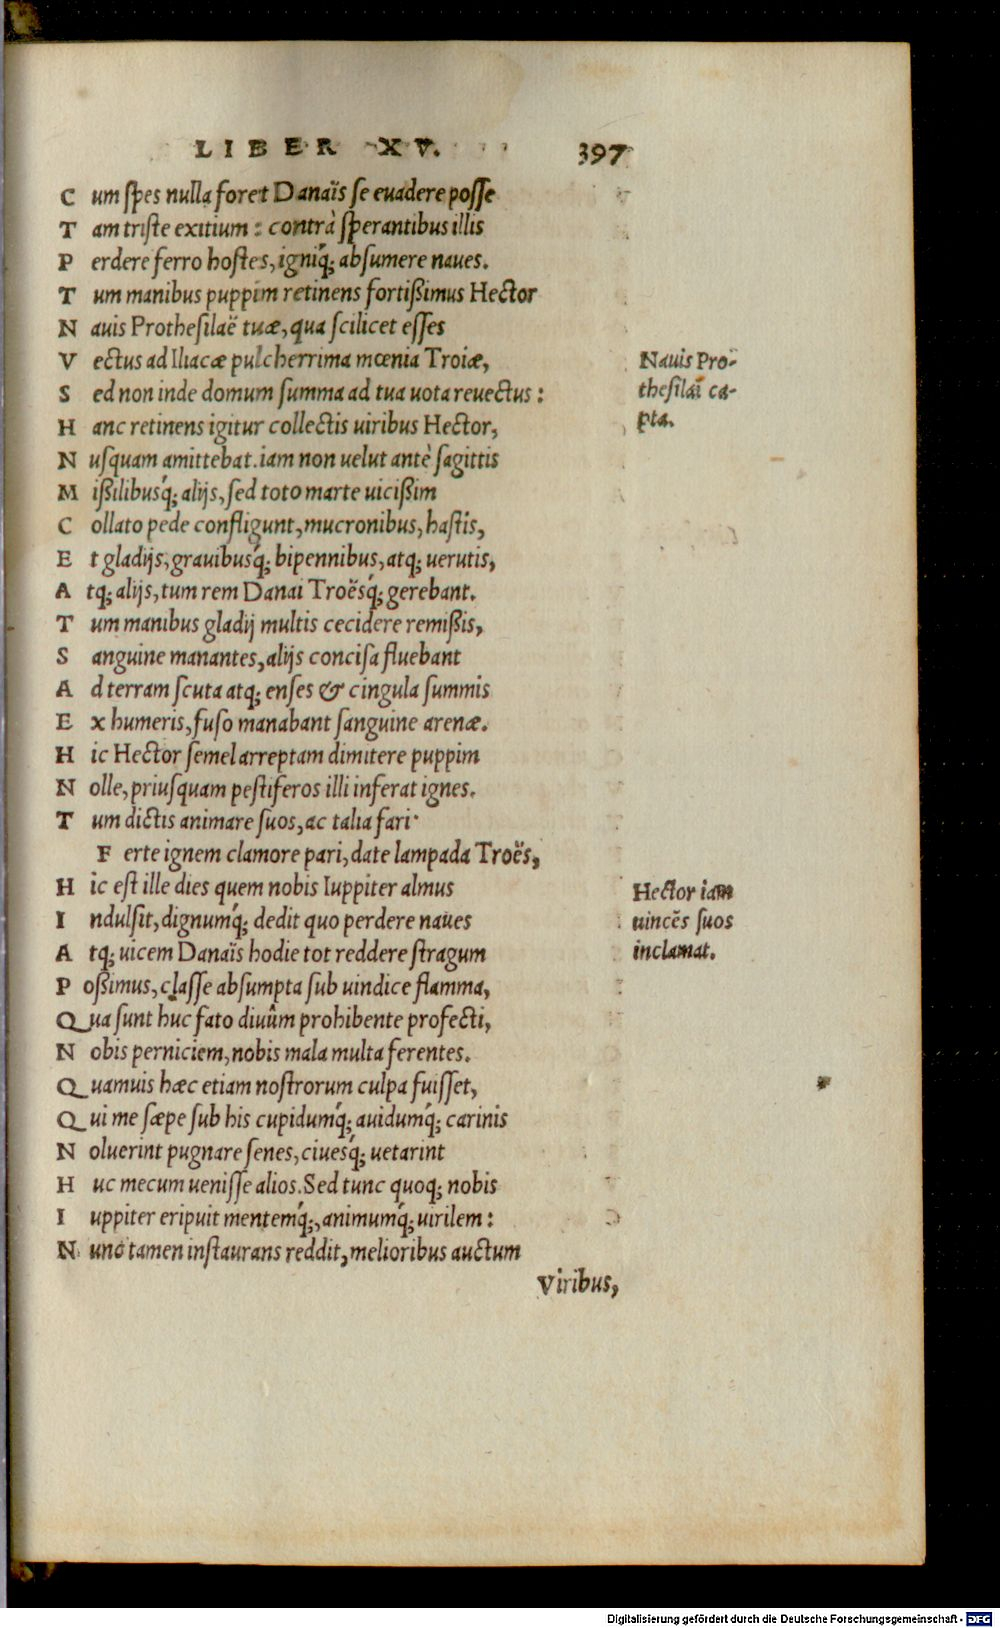 LIBER XV. 397
Cum ſpes nulla foret Danaïs ſe euadere poſſe
Tam triſte exitium: contrà ſperantibus illis
Perdere ferro hoſtes, igniq́; abſumere naues.
Tum manibus puppim retinens fortißimus Hector
Nauis Protheſilaë tuæ, qua ſcilicet eſſes
Vectus ad Iliacæ pulcherrima mœnia Troiæ,
Sed non inde domum ſumma ad tua uota reuectus:
Hanc retinens igitur collectis uiribus Hector,
Nuſquam amittebat. iam non uelut antè ſagittis
Mißilibusq́; alijs, ſed toto marte uicißim
Collato pede confligunt, mucronibus, haſtis,
Et gladijs, grauibusq́; bipennibus, atq; uerutis,
Atq; alijs, tum rem Danai Troësq́; gerebant.
Tum manibus gladij multis cecidere remißis,
Sanguine manantes, alijs conciſa fluebant
Ad terram ſcuta atq; enſes & cingula ſummis
Ex humeris, fuſo manabant ſanguine arenæ.
Hic Hector ſemel arreptam dimitere puppim
Nolle, priuſquam peſtiferos illi inferat ignes.
Tum dictis animare ſuos, ac talia fari·
Ferte ignem clamore pari, date lampada Troës,
Hic eſt ille dies quem nobis Iuppiter almus
Indulſit, dignumq́; dedit quo perdere naues
Atq; uicem Danaïs hodie tot reddere ſtragum
Poßimus, claſſe abſumpta ſub uindice flamma,
Qua ſunt huc fato diuûm prohibente profecti,
Nobis perniciem, nobis mala multa ferentes.
Quamuis hæc etiam noſtrorum culpa fuiſſet,
Qui me ſæpe ſub his cupidumq́; auidumq́; carinis
Noluerint pugnare ſenes, ciuesq́; uetarint
Huc mecum ueniſſe alios. Sed tunc quoq; nobis
Iuppiter eripuit mentemq́;, animumq́; uirilem:
Nunc tamen inſtaurans reddit, melioribus auctum
Viribus,
Nauis Pro-
theſilai ca-
pta.
Hector iam
uincẽs ſuos
inclamat.
Digitalisierung gefördert durch die Deutsche Forschungsgemeinschaft - DFG